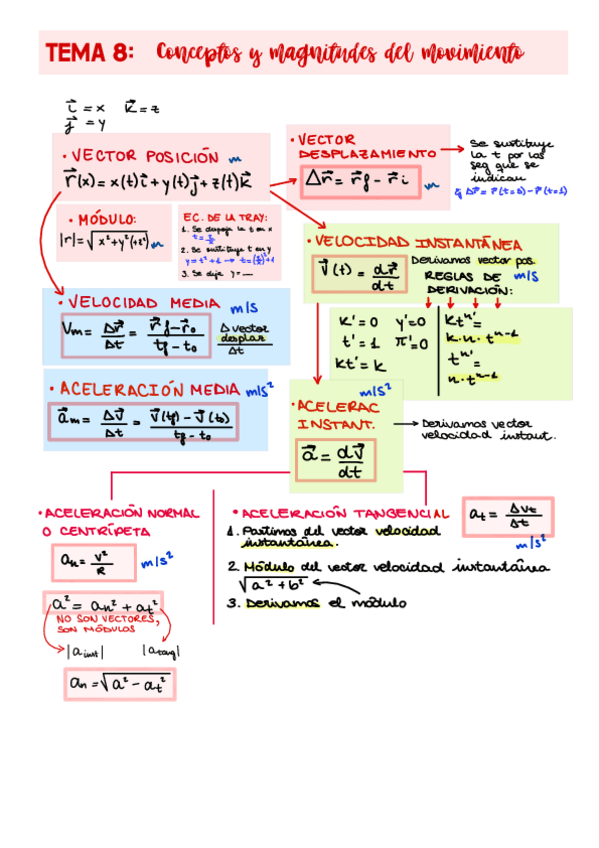 TEMA 8: Conceptos y magnitudes del movimiento
i⃗ = x   k⃗ = z
j⃗ = y
• VECTOR POSICIÓN m
r⃗(x) = x(t)i⃗ + y(t)j⃗ + z(t)k⃗
• VECTOR
DESPLAZAMIENTO
Δr⃗ = r⃗f - r⃗i m
Se sustituye
la t por los
seg que se
indican
ej Δr⃗ = r⃗(t=0) - r⃗(t=1)
• MÓDULO:
|r| = √x²+y²(+z²) m
EC. DE LA TRAY:
1. Se despeja la t en x
2. Se sustituye t en y
3. Se deja y = ....
• VELOCIDAD INSTANTÁNEA
v⃗(t) = dr⃗/dt
Derivamos vector pos.
m/s
REGLAS DE
DERIVACIÓN:
k' = 0   y' = 0
t' = 1   π' = 0
kt' = k
ktⁿ' =
k·n·tⁿ⁻¹
tⁿ' =
n·tⁿ⁻¹
• VELOCIDAD MEDIA m/s
Vm = Δr⃗/Δt = r⃗f - r⃗o/tf - to
Δ vector
desplaz
Δt
• ACELERACIÓN MEDIA m/s²
a⃗m = Δv⃗/Δt = v⃗(tf) - v⃗(to)/tf - to
m/s²
• ACELERAC
INSTANT.
a⃗ = dv⃗/dt
Derivamos vector
velocidad instant.
• ACELERACIÓN NORMAL
O CENTRÍPETA
an = v²/R m/s²
a² = an² + at²
NO SON VECTORES,
SON MÓDULOS
|a inst| |a tang|
an = √a² - at²
• ACELERACIÓN TANGENCIAL
at = Δvt/Δt
m/s²
1. Partimos del vector velocidad
instantánea.
2. Módulo del vector velocidad instantánea
√a² + b²
3. Derivamos el módulo